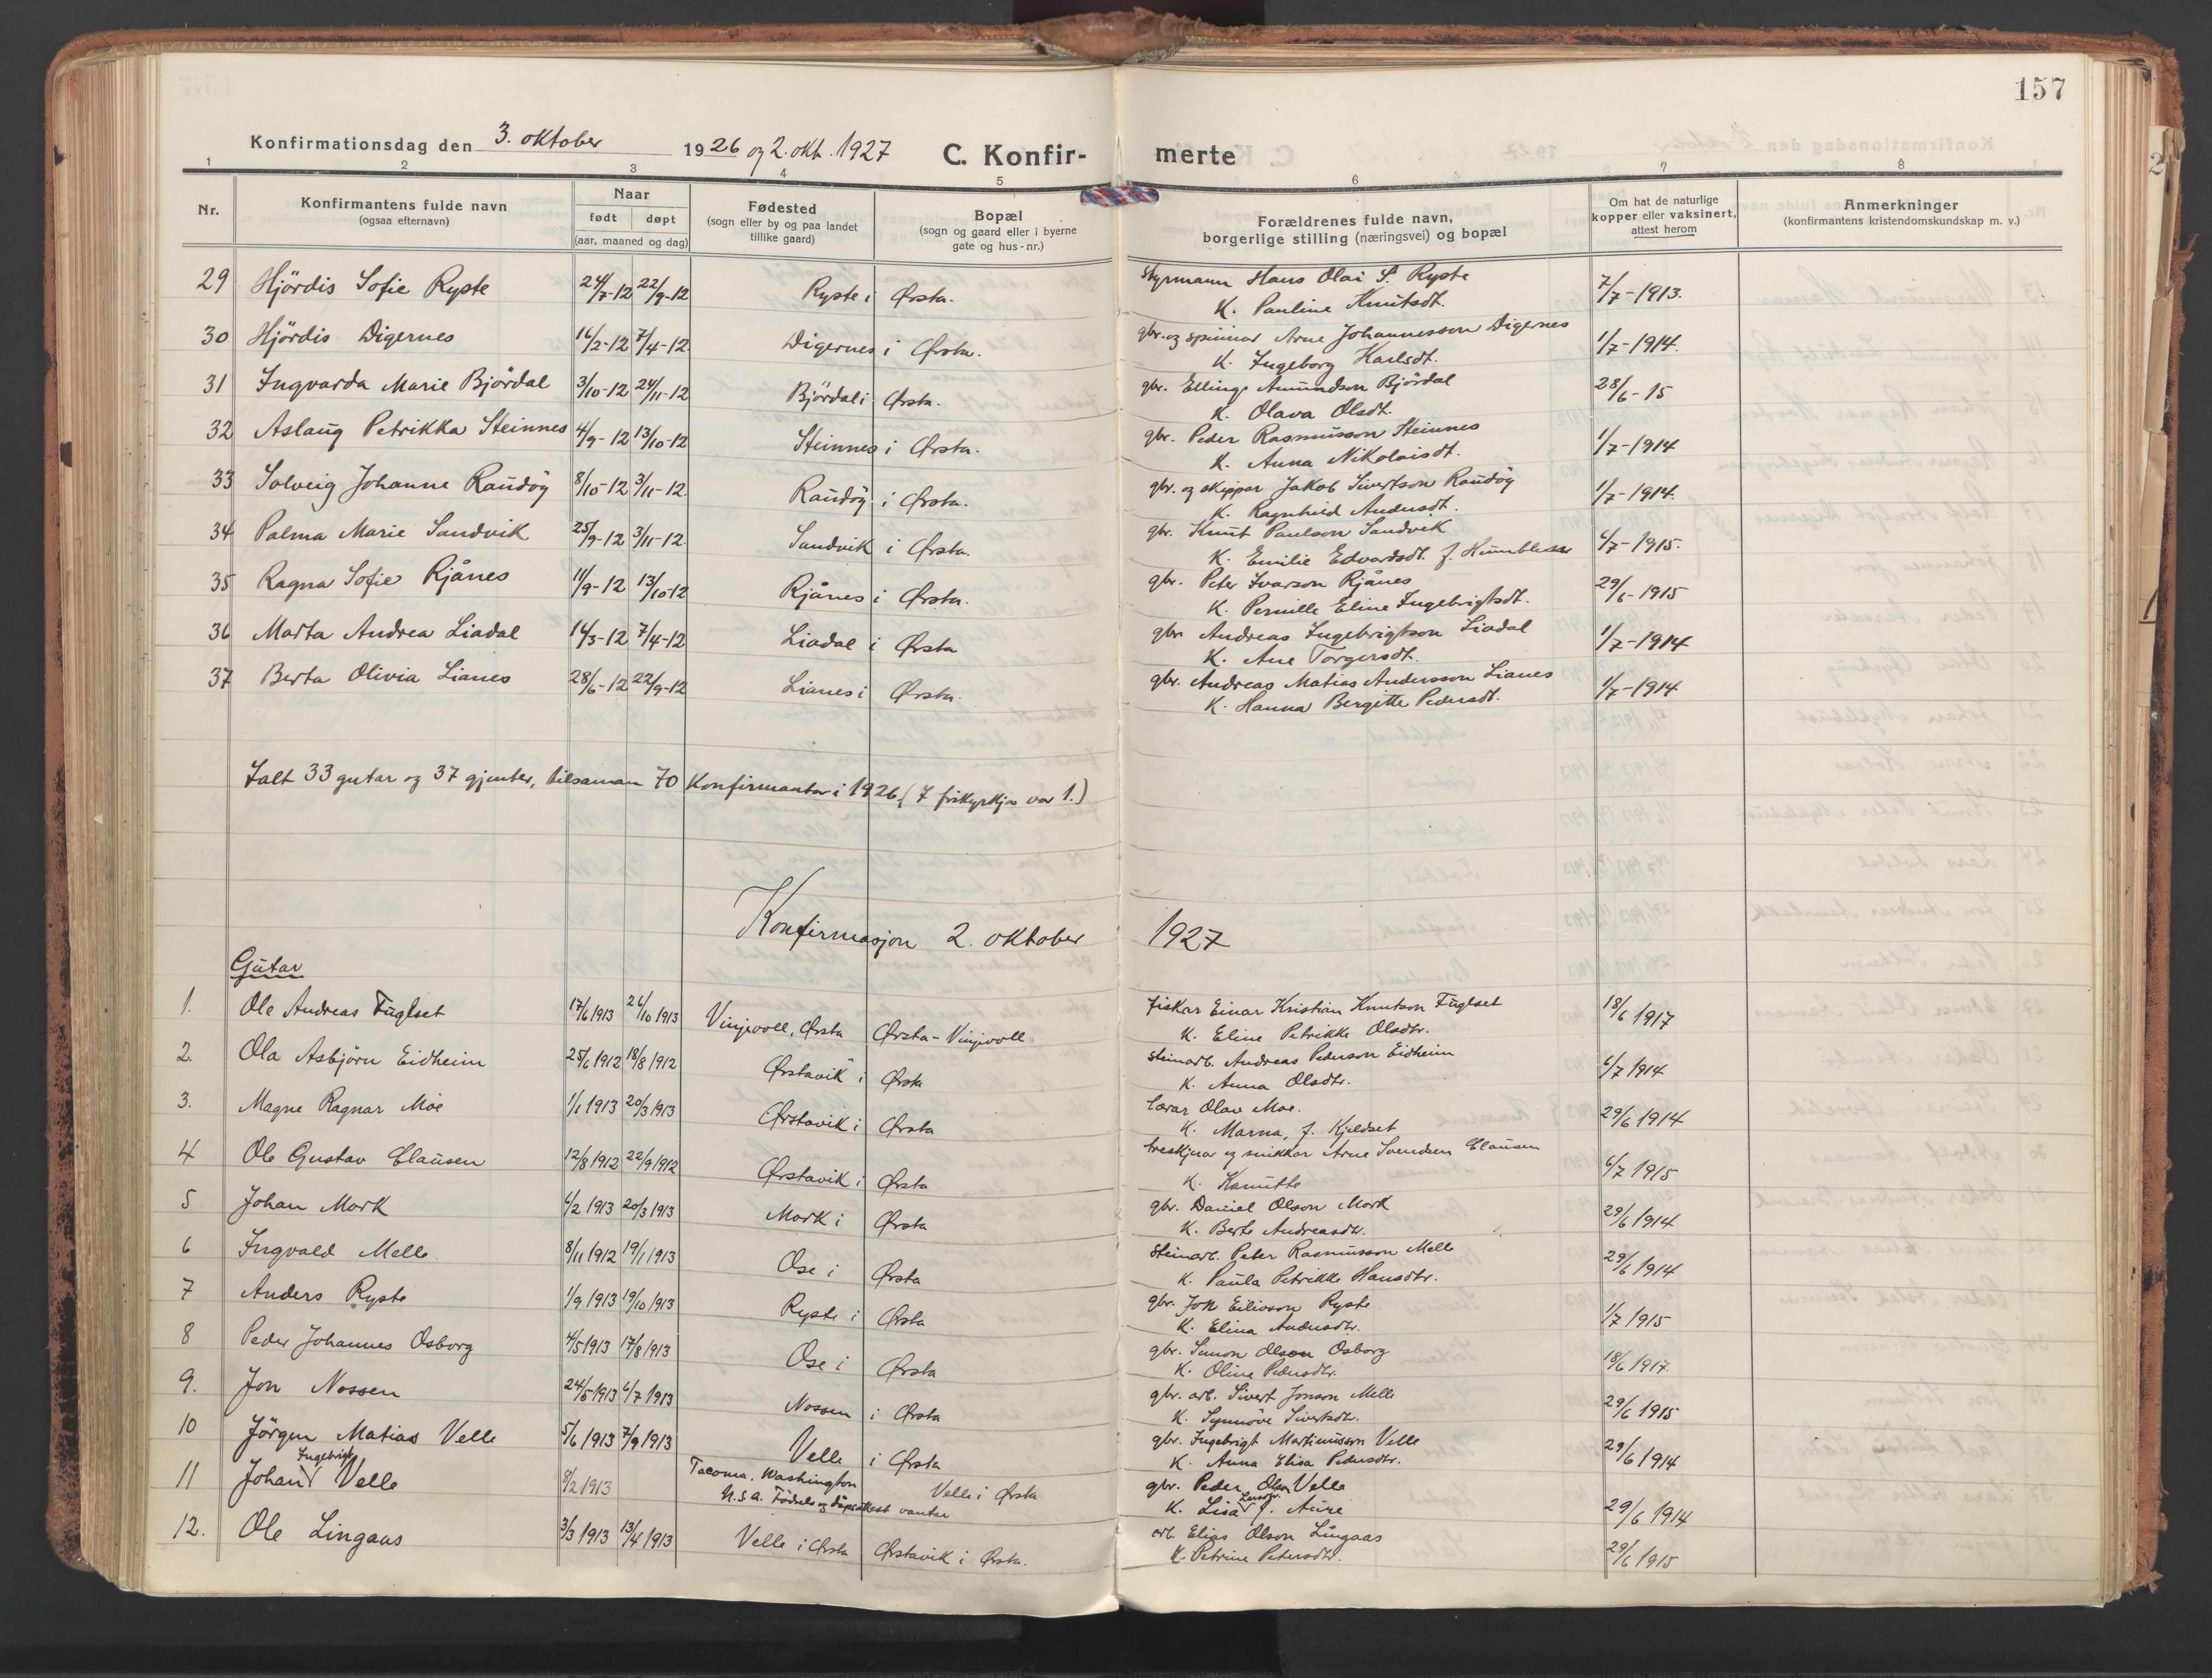 157
Konfirmationsdag den 3. oktober 1926 og 2. okt. 1927 C. Konfir- merte
1 2 3 4 5 6 7 8
Nr. Konfirmantens fulde navn (ogsaa efternavn) Naar født døpt (aar, maaned og dag) Fødested (sogn eller by og paa landet tillike gaard) Bopæl (sogn og gaard eller i byerne gate og hus-nr.) Forældrenes fulde navn, borgerlige stilling (næringsvei) og bopæl Om hat de naturlige kopper eller vaksinert, attest herom Anmerkninger (konfirmantens kristendomskundskap m. v.)
29 Hjördis Sofie Ryste 24/7-12 22/9-12 Ryste i Ørsta. Styrmann Hans Olai S. Ryste 7/7-1913.
K. Pauline Knutsdt.
30 Hjördis Digernes 16/2-12 7/4-12 Digernes i Ørsta. gbr. og spinnar Arne Johannesson Digernes 1/7-1914.
K. Ingeborg Karlsdt.
31 Ingvarda Marie Bjørdal 3/10-12 24/11-12 Björdal i Ørsta. gbr. Elling Amundson Björdal 28/6-15
K. Olava Olsdt.
32 Aslaug Petrikka Steinnes 4/9-12 13/10-12 Steinnes i Ørsta. gbr. Peder Rasmusson Steinnes 1/7-1914
K. Anna Nikolaisdt.
33 Solveig Johanne Raudöy 8/10-12 3/11-12. Raudöy i Ørsta. gbr. og skippar Jakob Sivertson Raudöy 1/7-1914.
K. Ragnhild Andersdt.
34 Palma Marie Sandvik 25/9-12 3/11-12. Sandvik i Ørsta. gbr. Knut Paulson Sandvik 6/7-1915.
K. Emilie Edvardsdt. f.
35 Ragna Sofie Rjånes 11/9-12 13/10-12 Rjånes i Ørsta. gbr. Peter Ivarson Rjånes 29/6-1915
K. Pernille Eline Ingebrigtsdt.
36 Marta Andrea Liadal 14/3-12 7/4-12 Liadal i Ørsta gbr. Andreas Ingebrigtson Liadal 1/7-1914
K. Ane Torgersdt.
37 Berta Olivia Lianes 28/6-12 22/9-12 Lianes i Ørsta. gbr. Andreas Matias Andersson Lianes 1/7-1914
K. Hanna Bergitte Pedersdt.
Ialt 33 gutar og 37 gjenter, tilsaman 70 Konfirmantar i 1926 (I frikyrkja var 1.)
Konfirmasjon 2. oktober 1927
Gutar
1. Ole Andreas Fuglset 17/6 1913 26/10 1913 Vinjevoll, Ørsta Ørsta-Vinjevoll fiskar Einar Kristian Knutson Fuglset 18/6 1917
K. Eline Petrikke Olsdtr.
2. Ola Asbjörn Eidheim 25/6 1912 18/8 1912 Ørstavik i Ørsta Steinarb. Andreas Pederson Eidheim 6/7 1914
K. Anna Olsdtr.
3. Magne Ragnar Moe 1/1 1913 20/3 1913 Ørstavik i Ørsta lærar Olav Moe. 29/6 1914
K. Marna, f. Kjeldset
4 Ole Gustav Clausen 12/8 1912 22/9 1912 Ørstavik i Ørsta treskjerar og snikkar Arne Svendsen Clausen 6/7 1915
K. Kanutte
5 Johan Mork 6/2 1913 20/3 1913 Mork i Ørsta gbr. Daniel Olson Mork 29/6 1914
K. Berte Andreasdtr.
6 Ingvald Melle 8/11 1912 19/1 1913 Ose i Ørsta Steinarb. Peter Rasmusson Melle 29/6 1914
K. Paula Petrikke Hansdtr.
7 Anders Ryste 1/9 1913 19/10 1913 Ryste i Ørsta gbr. Jon Eilivson Ryste 1/7 1915
K. Elina Andersdtr.
8 Peder Johannes Osborg 4/5 1913 17/8 1913 Ose i Ørsta gbr. Simon Olson Osborg 18/6 1917.
K. Oline Pedersdtr.
9. Jon Nossen 24/5 1913 6/7 1913 Nossen i Ørsta gbr. arb. Sivert Jonson Melle 29/6 1915
K. Synnöve Sivertsdtr.
10 Jörgen Matias Velle 5/6 1913 7/9 1913 Velle i Ørsta gbr. Ingebrigt Martinusson Velle 29/6 1914
K. Anna Elisa Pedersdtr.
11 Johan Ingebrigt Velle 8/2 1913 Tacoma, Washington Velle i Ørsta gbr. Peder Olson Velle 29/6 1914
U.S.A. Födsels og dåpsattest vantar K. Lisa f. Aure
12. Ole Lingaas 3/3 1913 13/4 1913 Velle i Ørsta Ørstavik i Ørsta. arb. Elias Olson Lingaas 29/6 1915
K. Petrine Petersdtr.